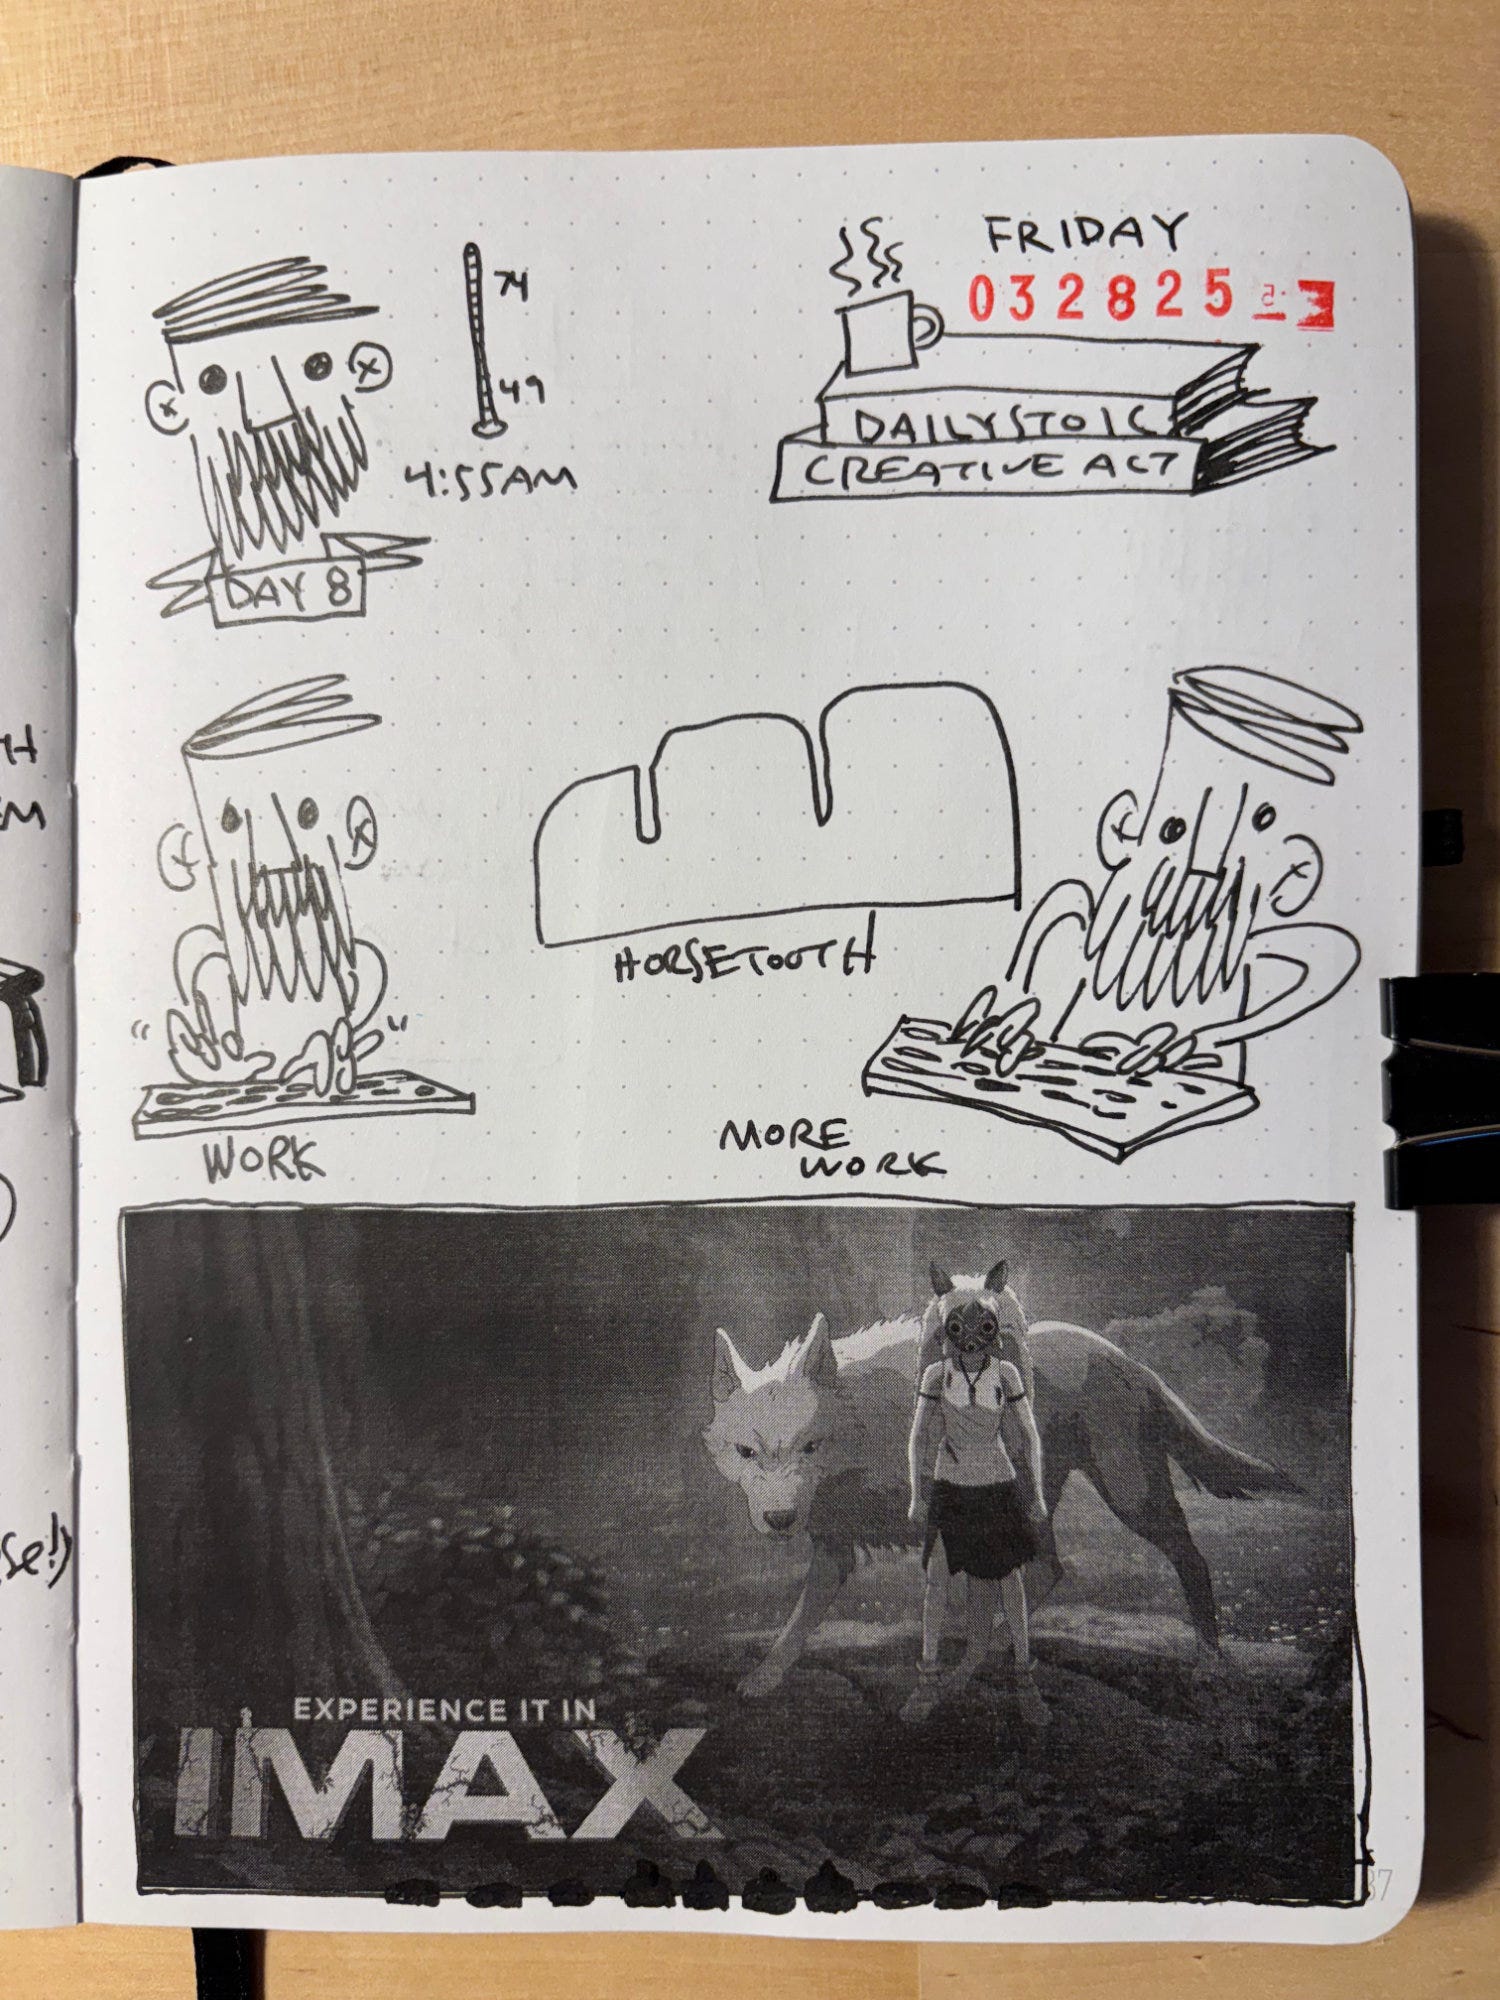 FRIDAY
032825
74
49
4:55AM
DAILY STOIC
CREATIVE ACT
DAY 8
HORSETOOTH
WORK
MORE
WORK
EXPERIENCE IT IN
IMAX
se!)